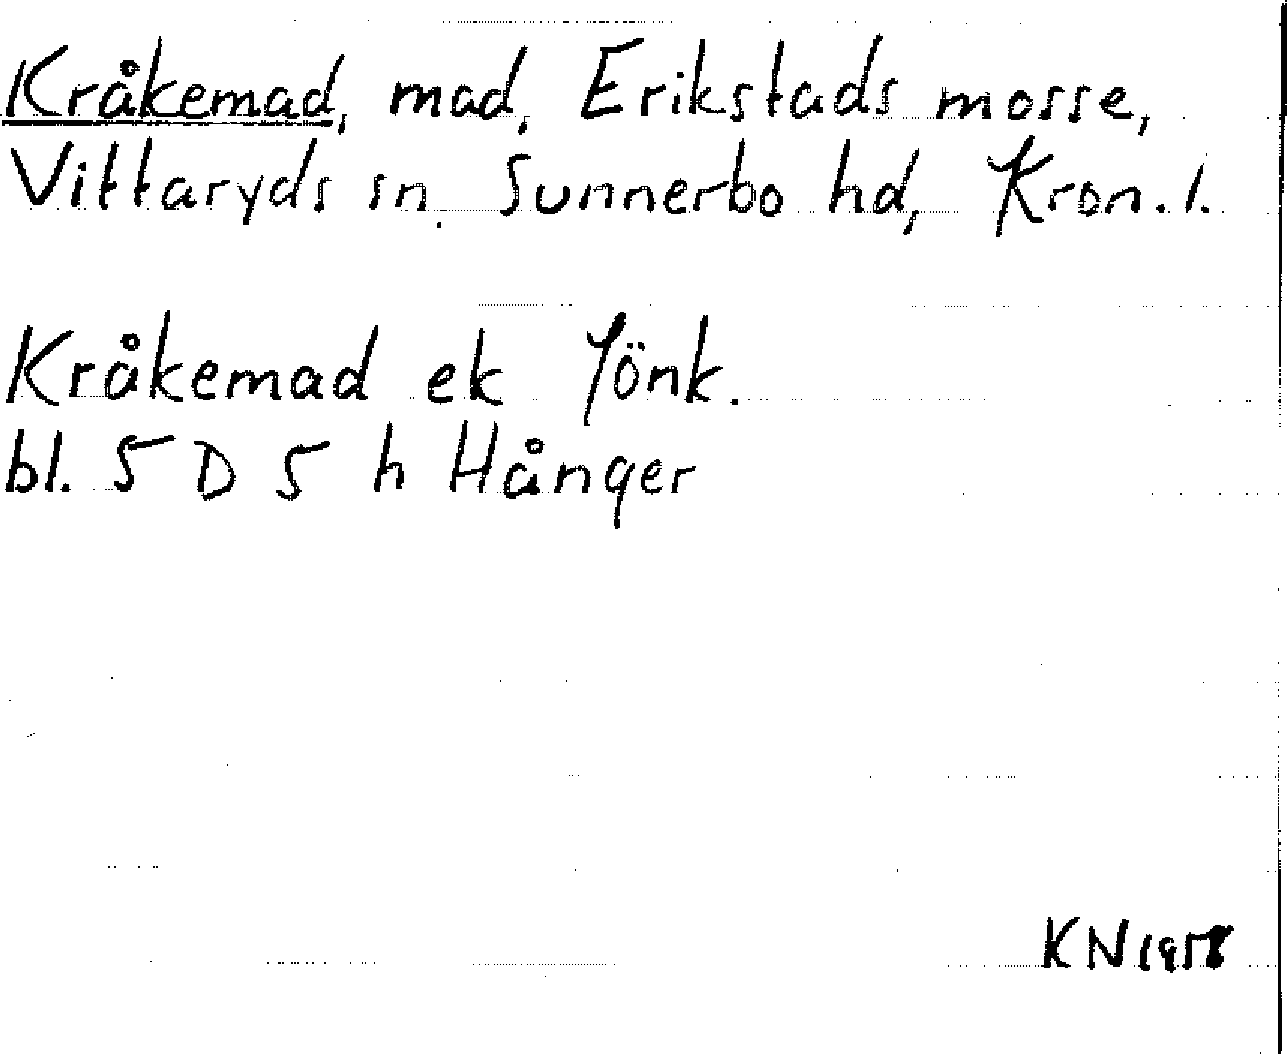 Kråkemad, mad, Erikstads mosse,
Vittaryds sn. Sunnerbo hd, Kron. l.
Kråkemad ek Jönk.
bl. 5 D 5 h Hånger
KN 1958